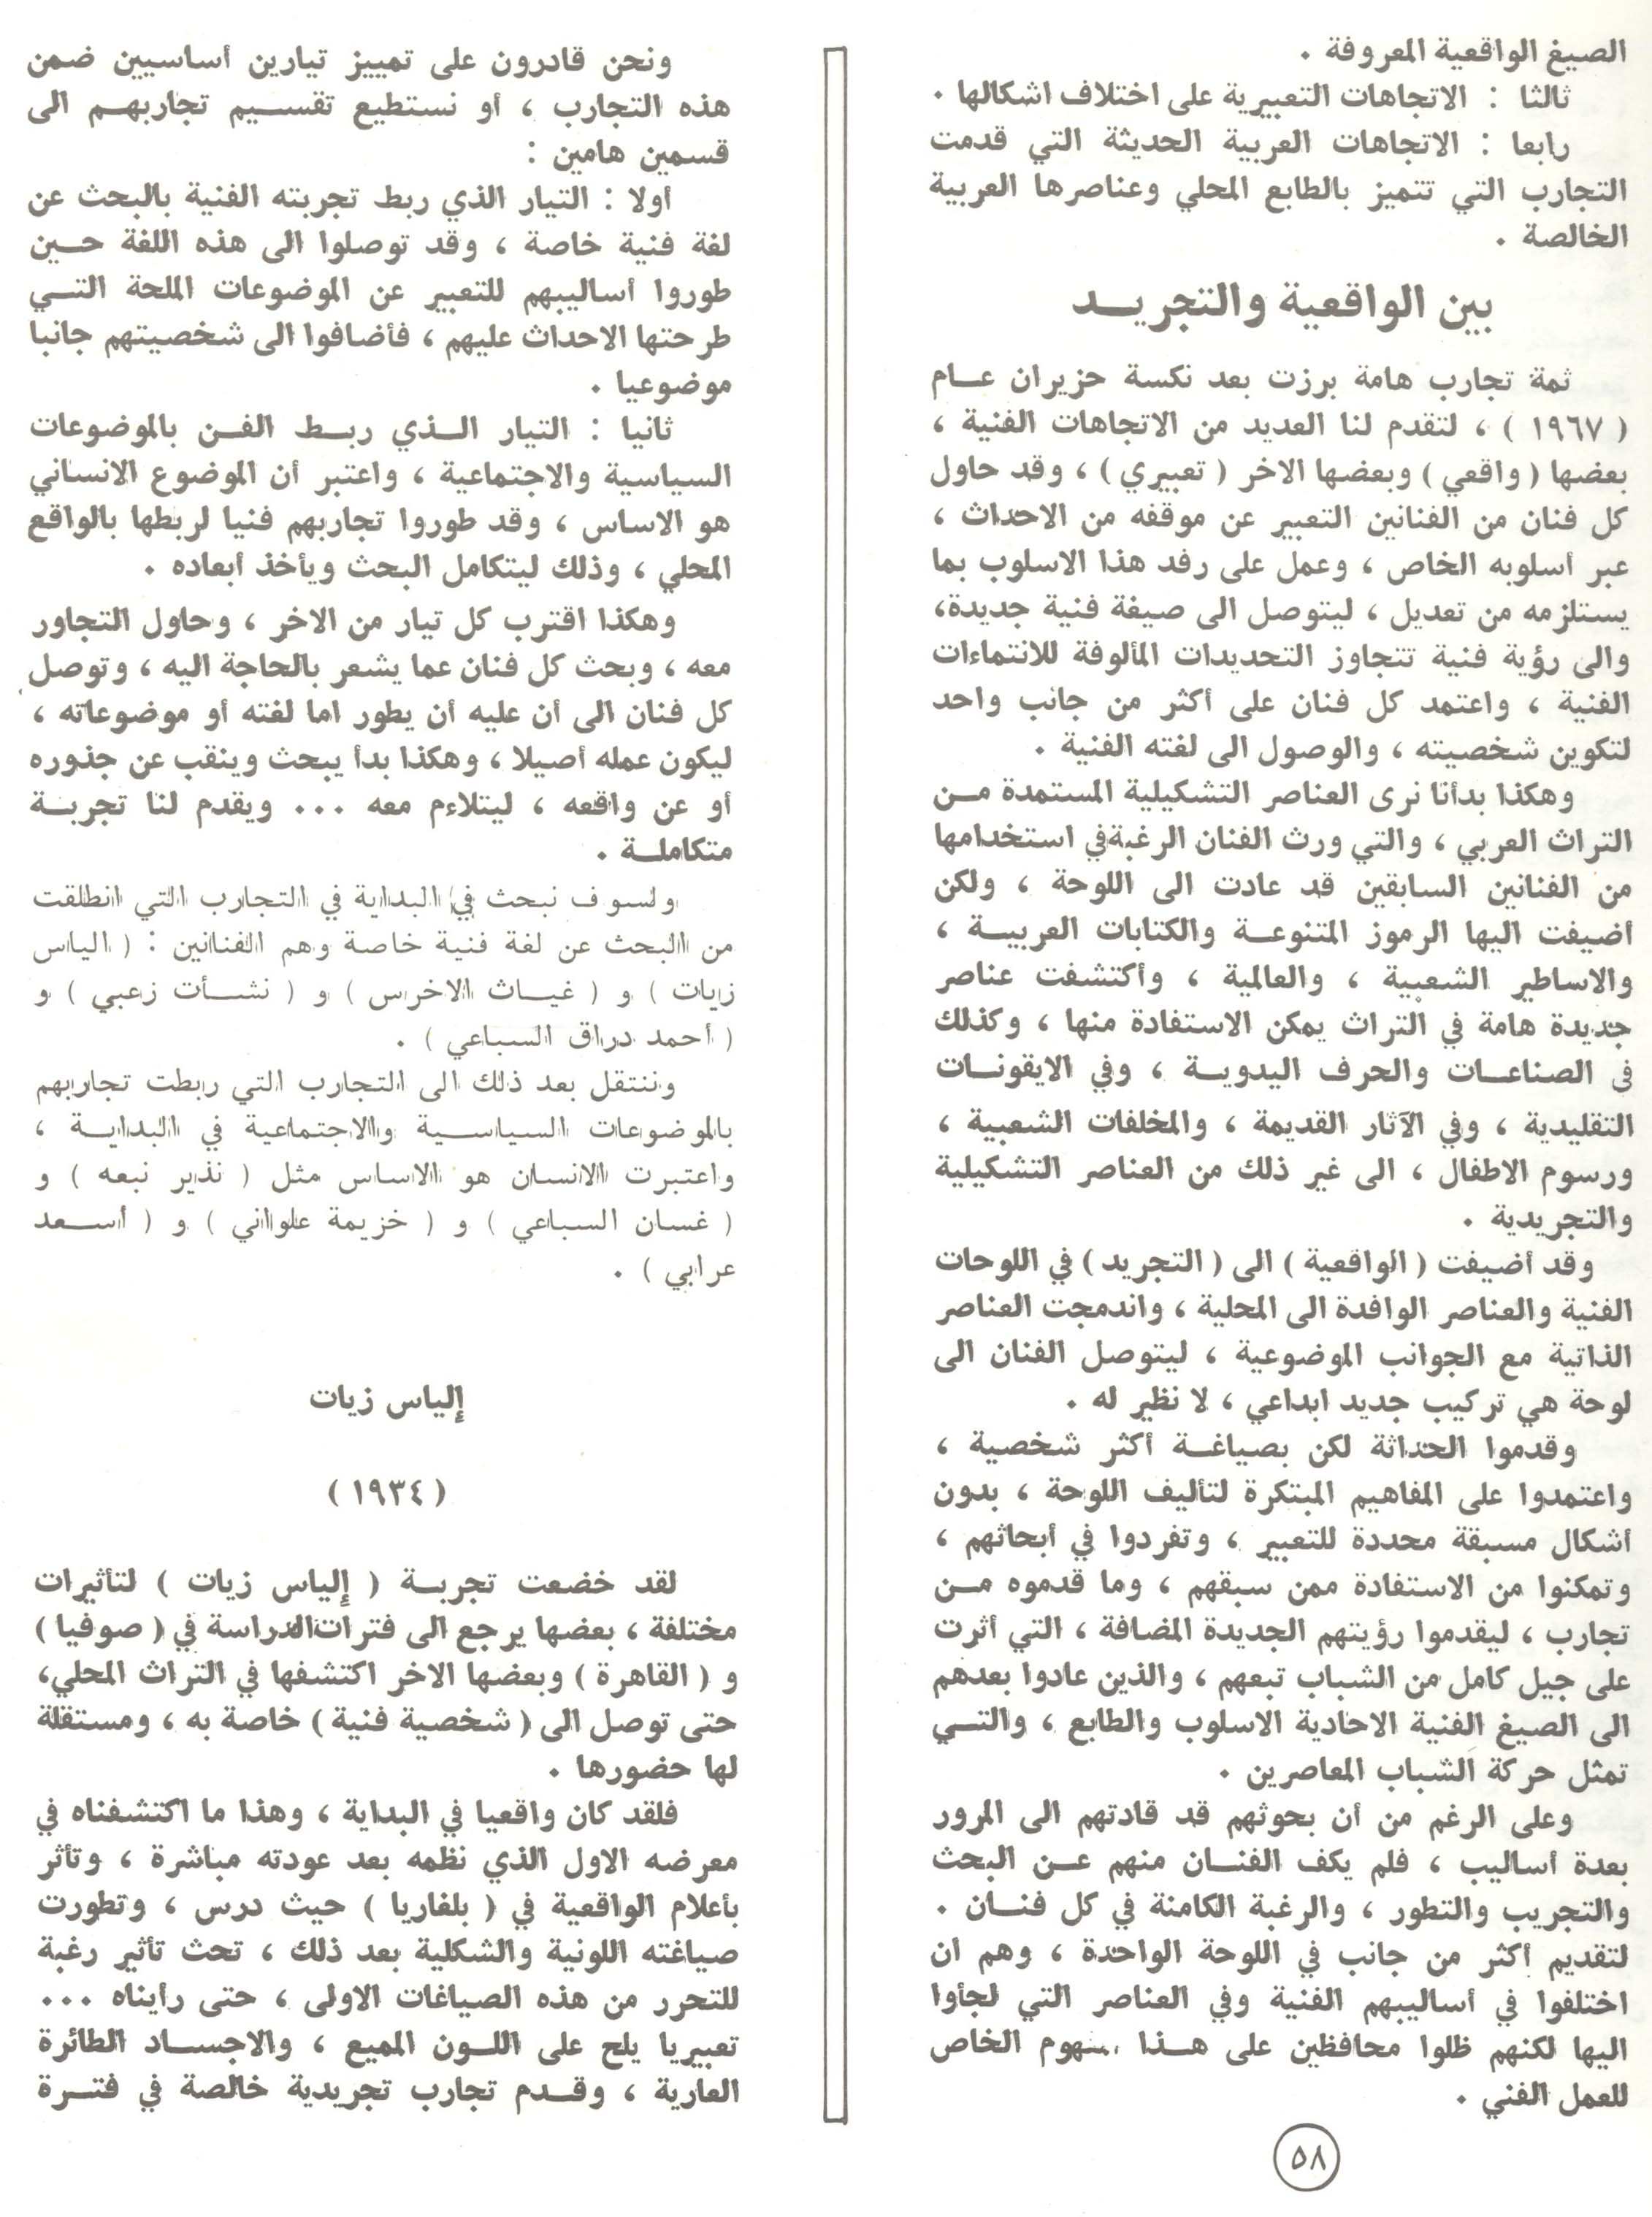 الصيغ الواقعية المعروفة .
ثالثا : الاتجاهات التعبيرية على اختلاف اشكالها .
رابعا : الاتجاهات العربية الحديثة التي قدمت
التجارب التي تتميز بالطابع المحلي وعناصرها العربية
الخالصة .
بين الواقعية والتجريــد
ثمة تجارب هامة برزت بعد نكسة حزيران عــام
( ١٩٦٧ ) ، لتقدم لنا العديد من الاتجاهات الفنية ،
بعضها ( واقعي ) وبعضها الاخر ( تعبيري ) ، وقد حاول
كل فنان من الفنانين التعبير عن موقفه من الاحداث ،
عبر أسلوبه الخاص ، وعمل على رفد هذا الاسلوب بما
يستلزمه من تعديل ، ليتوصل الى صيغة فنية جديدة،
والى رؤية فنية تتجاوز التحديدات المألوفة للانتماءات
الفنية ، واعتمد كل فنان على أكثر من جانب واحد
لتكوين شخصيته ، والوصول الى لغته الفنية .
وهكذا بدأنا نرى العناصر التشكيلية المستمدة مــن
التراث العربي ، والتي ورث الفنان الرغبة في استخدامها
من الفنانين السابقين قد عادت الى اللوحة ، ولكن
أضيفت اليها الرموز المتنوعــة والكتابات العربيــة ،
والاساطير الشعبية ، والعالمية ، وأكتشفت عناصر
جديدة هامة في التراث يمكن الاستفادة منها ، وكذلك
في الصناعــات والحرف اليدويــة ، وفي الايقونــات
التقليدية ، وفي الآثار القديمة ، والمخلفات الشعبية ،
ورسوم الاطفال ، الى غير ذلك من العناصر التشكيلية
والتجريدية .
وقد أضيفت ( الواقعية ) الى ( التجريد ) في اللوحات
الفنية والعناصر الوافدة الى المحلية ، واندمجت العناصر
الذاتية مع الجوانب الموضوعية ، ليتوصل الفنان الى
لوحة هي تركيب جديد ابداعي ، لا نظير له .
وقدموا الحداثة لكن بصياغــة أكثر شخصية ،
واعتمدوا على المفاهيم المبتكرة لتأليف اللوحة ، بدون
أشكال مسبقة محددة للتعبير ، وتفردوا في أبحاثهم ،
وتمكنوا من الاستفادة ممن سبقهم ، وما قدموه مــن
تجارب ، ليقدموا رؤيتهم الجديدة المضافة ، التي أثرت
على جيل كامل من الشباب تبعهم ، والذين عادوا بعدهم
الى الصيغ الفنية الاحادية الاسلوب والطابع ، والتــي
تمثل حركة الشباب المعاصرين .
وعلى الرغم من أن بحوثهم قد قادتهم الى المرور
بعدة أساليب ، فلم يكف الفنــان منهم عــن البحث
والتجريب والتطور ، والرغبة الكامنة في كل فنــان .
لتقديم أكثر من جانب في اللوحة الواحدة ، وهم ان
اختلفوا في أساليبهم الفنية وفي العناصر التي لجأوا
اليها لكنهم ظلوا محافظين على هــذا الخاص
للعمل الفني .
ونحن قادرون على تمييز تيارين أساسيين ضمن
هذه التجارب ، أو نستطيع تقســيم تجاربهــم الى
قسمين هامين :
أولا : التيار الذي ربط تجربته الفنية بالبحث عن
لغة فنية خاصة ، وقد توصلوا الى هذه اللغة حــين
طوروا أساليبهم للتعبير عن الموضوعات الملحة التــي
طرحتها الاحداث عليهم ، فأضافوا الى شخصيتهم جانبا
موضوعيا .
ثانيا : التيار الــذي ربــط الفــن بالموضوعات
السياسية والاجتماعية ، واعتبر أن الموضوع الانساني
هو الاساس ، وقد طوروا تجاربهم فنيا لربطها بالواقع
المحلي ، وذلك ليتكامل البحث ويأخذ أبعاده .
وهكذا اقترب كل تيار من الاخر ، وحاول التجاور
معه ، وبحث كل فنان عما يشعر بالحاجة اليه ، وتوصل
كل فنان الى أن عليه أن يطور اما لغته أو موضوعاته ،
ليكون عمله أصيلا ، وهكذا بدأ يبحث وينقب عن جذوره
أو عن واقعه ، ليتلاءم معه ... ويقدم لنا تجربــة
متكاملــة .
ولسوف نبحث في البداية في التجارب التي انطلقت
من البحث عن لغة فنية خاصة وهم الفنانين : ( الياس
زيات ) و ( غيــاث الاخرس ) و ( نشــأت زعبي ) و
( أحمد دراق السباعي ) .
وننتقل بعد ذلك الى التجارب التي ربطت تجاربهم
بالموضوعات السياســية والاجتماعية في البدايــة ،
واعتبرت الانسان هو الاساس مثل ( نذير نبعه ) و
( غسان السباعي ) و ( خزيمة علواني ) و ( أســعد
عرابي ) .
إلياس زيات
( ١٩٣٤ )
لقد خضعت تجربــة ( إلياس زيات ) لتأثيرات
مختلفة ، بعضها يرجع الى فترات الدراسة في ( صوفيا )
و ( القاهرة ) وبعضها الاخر اكتشفها في التراث المحلي،
حتى توصل الى ( شخصية فنية ) خاصة به ، ومستقلة
لها حضورها .
فلقد كان واقعيا في البداية ، وهذا ما اكتشفناه في
معرضه الاول الذي نظمه بعد عودته مباشرة ، وتأثر
بأعلام الواقعية في ( بلغاريا ) حيث درس ، وتطورت
صياغته اللونية والشكلية بعد ذلك ، تحث تأثير رغبة
للتحرر من هذه الصياغات الاولى ، حتى رأيناه ...
تعبيريا يلح على اللــون المميع ، والاجســاد الطائرة
العارية ، وقــدم تجارب تجريدية خالصة في فتــرة
٥٨